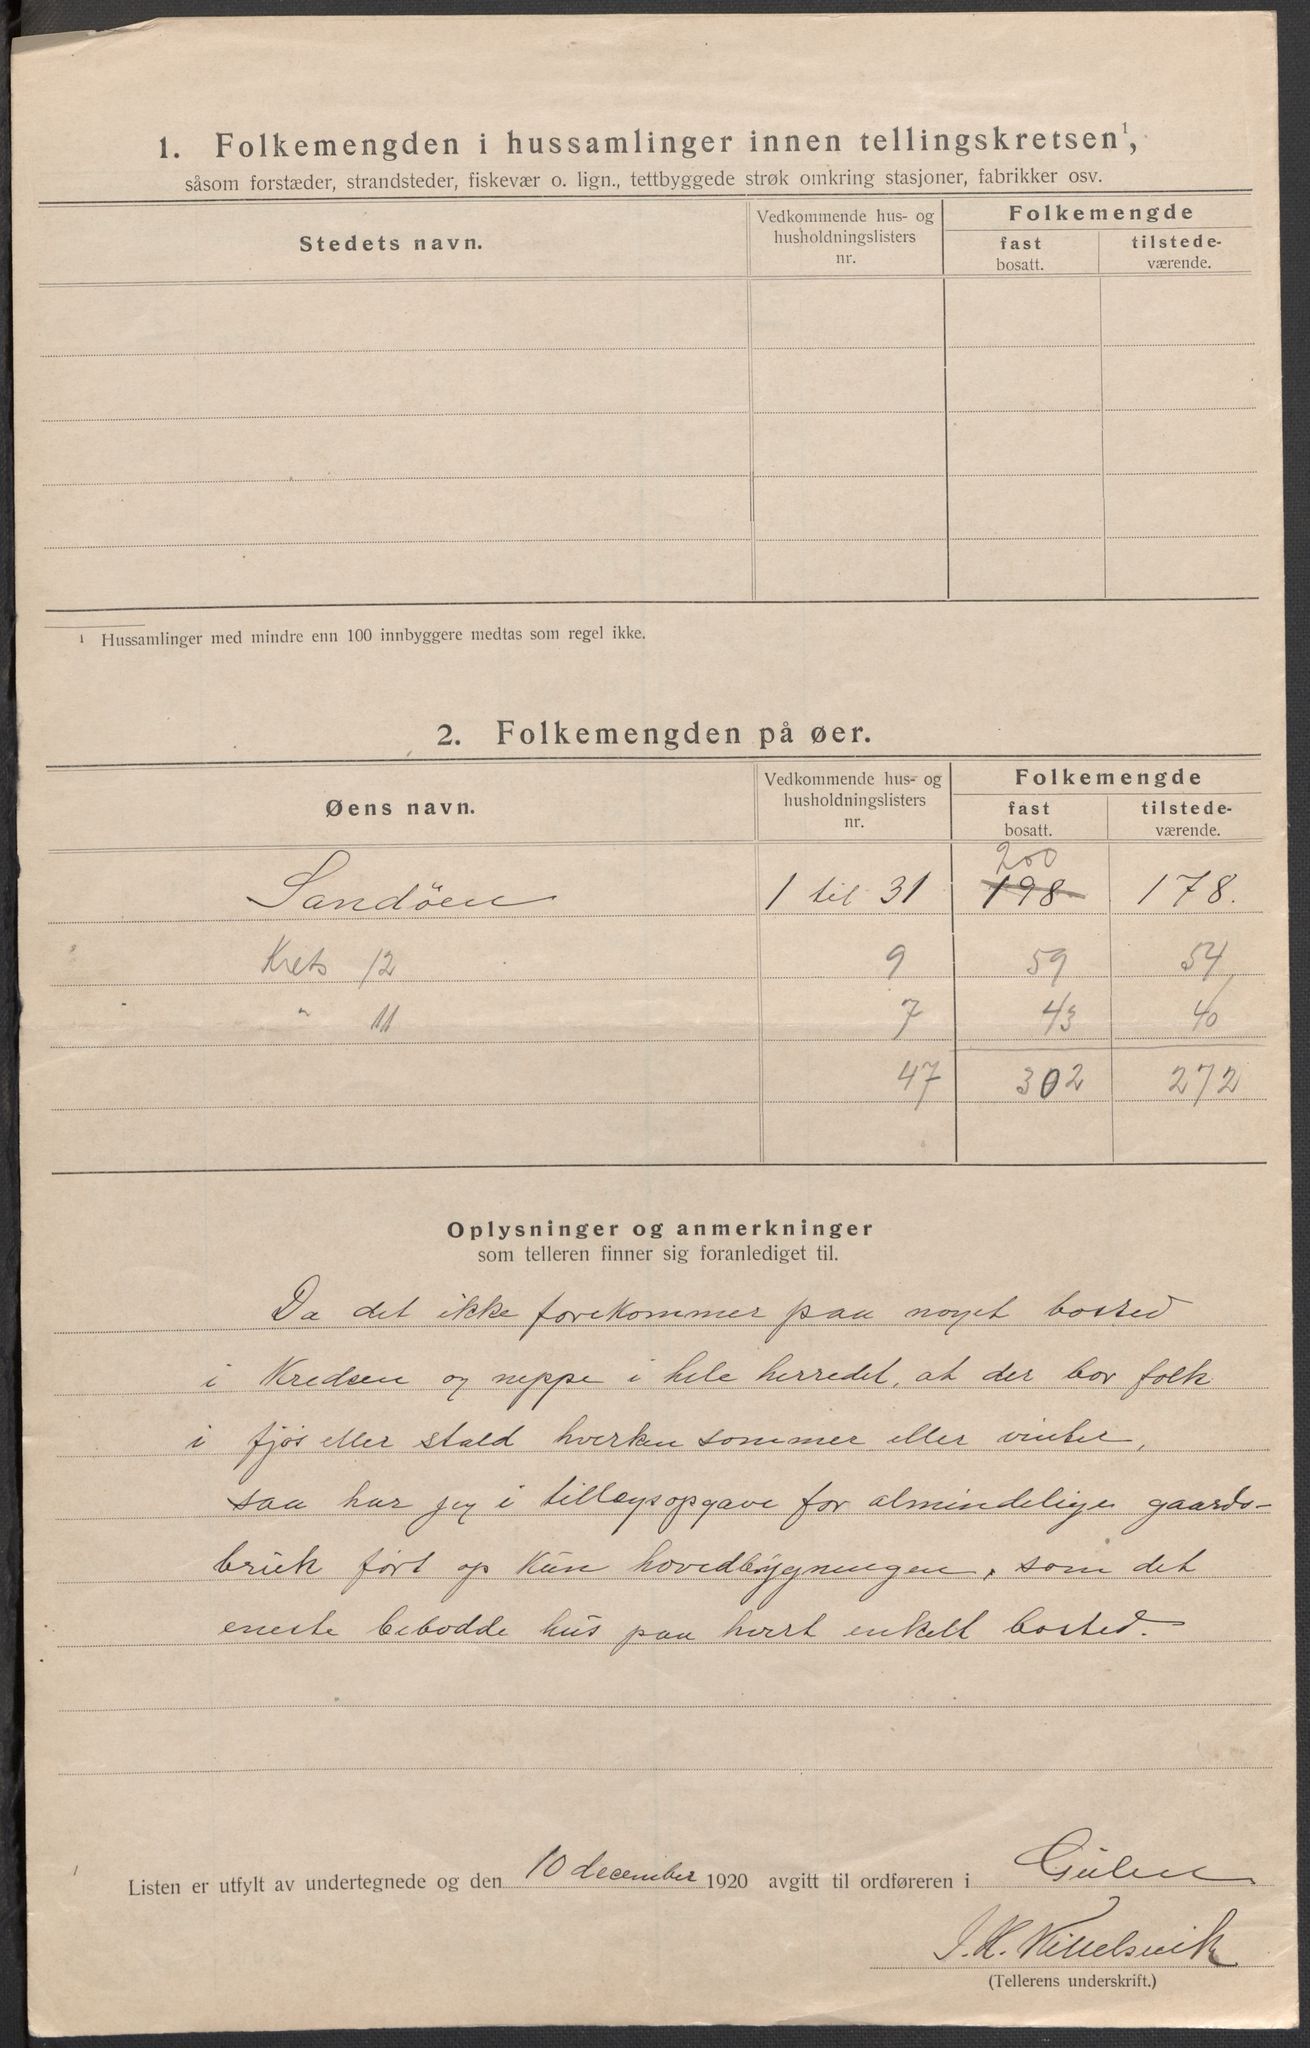 1. Folkemengden i hussamlinger innen tellingskretsen¹,
såsom forstæder, strandsteder, fiskevær o. lign., tettbyggede strøk omkring stasjoner, fabrikker osv.
Stedets navn.
Vedkommende hus- og husholdningslisters nr.
Folkemengde
fast bosatt.
tilstede-værende.
¹ Hussamlinger med mindre enn 100 innbyggere medtas som regel ikke.
2. Folkemengden på øer.
Øens navn.
Vedkommende hus- og husholdningslisters nr.
Folkemengde
fast bosatt.
tilstede-værende.
200
Sandöen 1 til 31 198 178.
Krets 12 9 59 54
" 11 7 43 40
47 302 272
Oplysninger og anmerkninger
som telleren finner sig foranlediget til.
Da det ikke forekommer paa noget bosted
i Kredsen og neppe i hele herredet, at der bor folk
i fjøs eller stald hverken sommer eller vinter,
saa har jeg i tillægsopgave for almindelige gaards-
bruk ført op kun hovedbygningen, som det
eneste bebodde hus paa hvert enkelt bosted.
Listen er utfylt av undertegnede og den 10 december 1920 avgitt til ordføreren i Gulen
(Tellerens underskrift.)